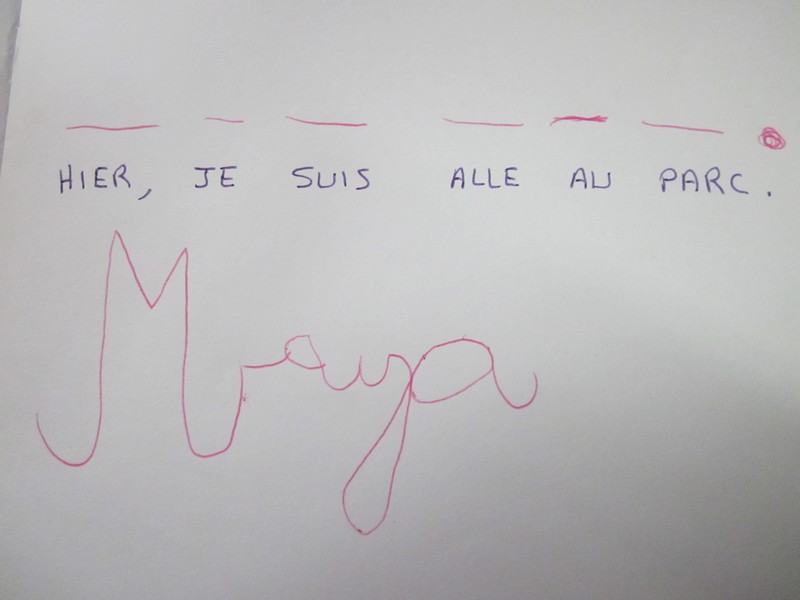 HIER, JE SUIS ALLE AU PARC.
Maya